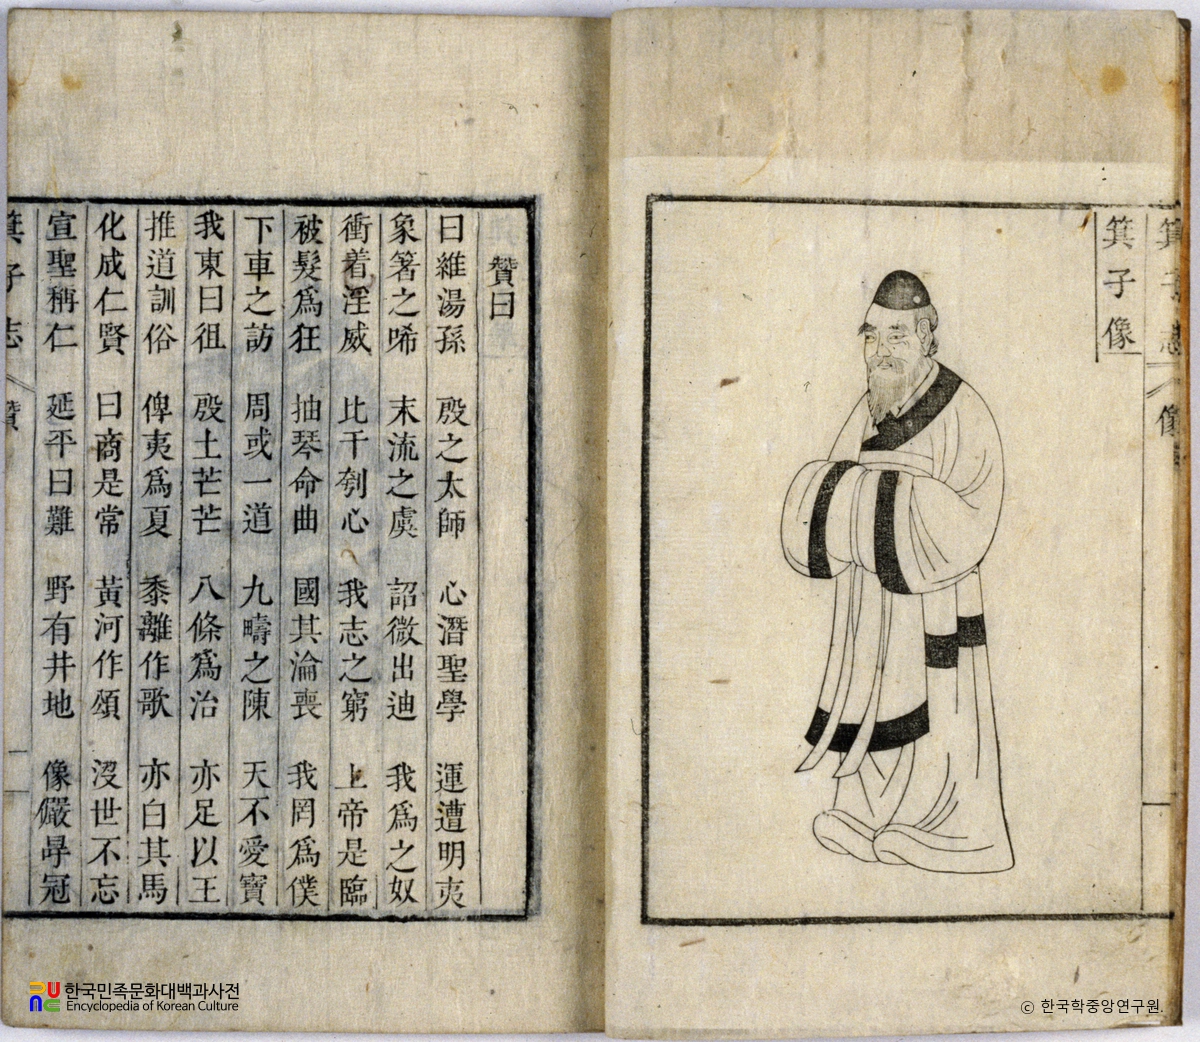 箕子志 像
箕子像
贊曰
曰維湯孫 殷之太師 心潛聖學 運遭明夷
象箸之唏 末流之虞 詔微出迪 我爲之奴
衝着淫威 比干刳心 我志之窮 上帝是臨
被髮爲狂 抽琴命曲 國其淪喪 我罔爲僕
下車之訪 周或一道 九疇之陳 天不愛寶
我東曰徂 殷土芒芒 八條爲治 亦足以王
推道訓俗 俾夷爲夏 黍離作歌 亦白其馬
化成仁賢 曰商是常 黃河作頌 沒世不忘
宣聖稱仁 延平曰難 野有井地 像儼冔冠
箕子志 贊
한국민족문화대백과사전
Encyclopedia of Korean Culture
ⓒ 한국학중앙연구원.